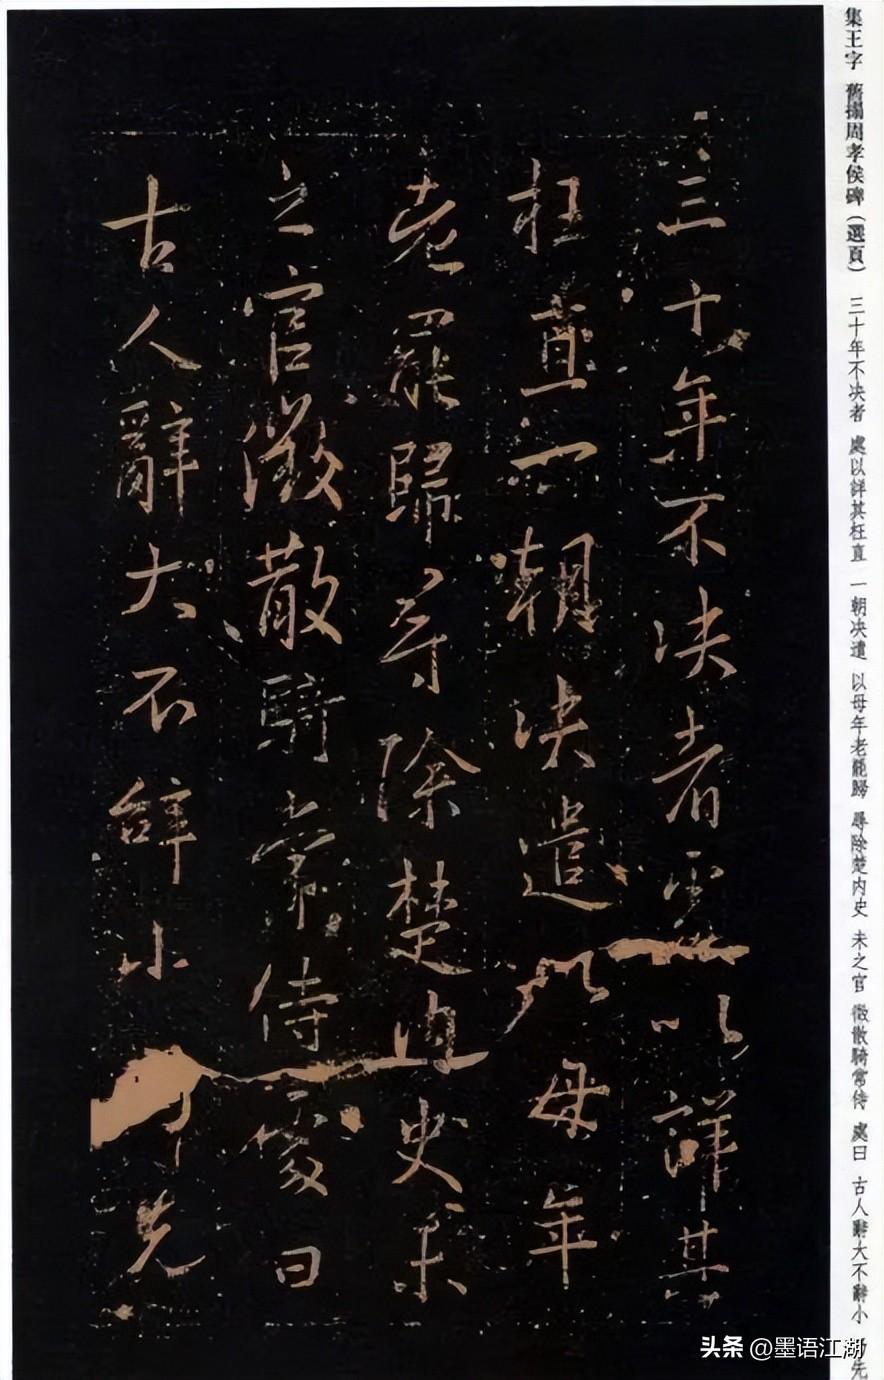 三十年不决者處以詳其
枉直一朝决遣以母年
老罷歸尋除楚內史未
之官徵散騎常侍處曰
古人辭大不辭小乃先
集王字 舊搨周孝侯碑（選頁） 三十年不决者 處以詳其枉直 一朝决遣 以母年老罷歸 尋除楚內史 未之官 徵散騎常侍 處曰 古人辭大不辭小 先
头条 @墨语江湖